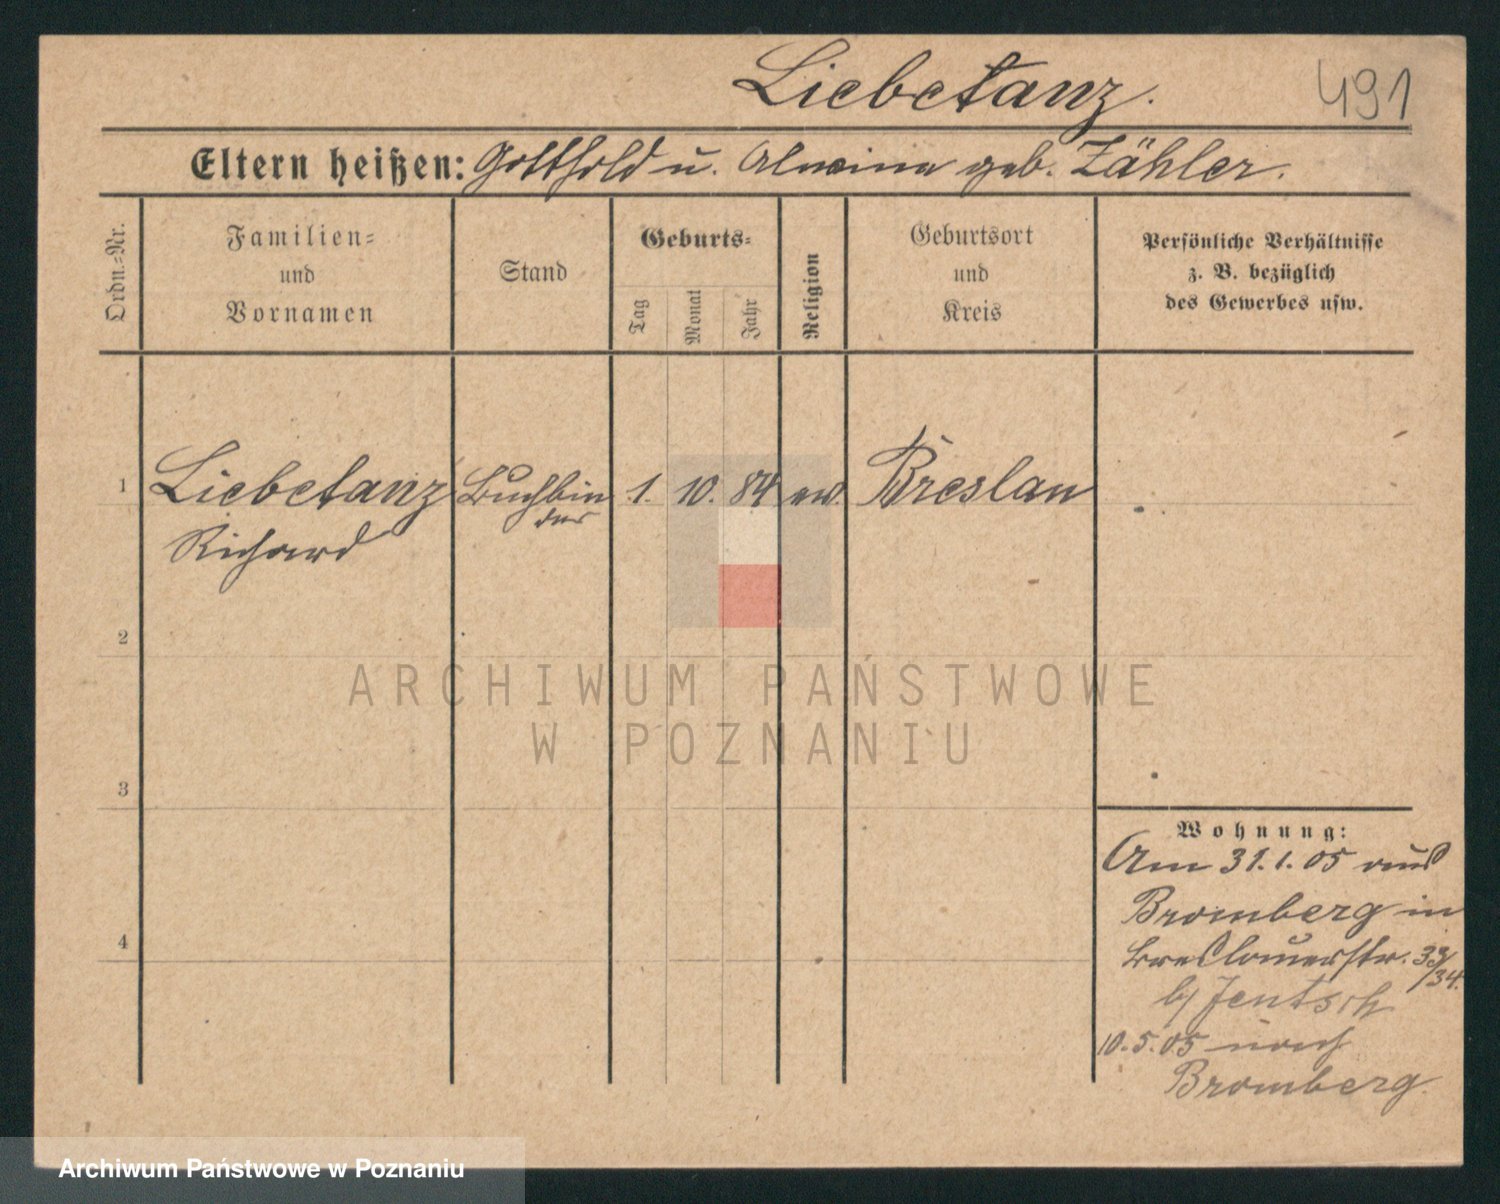 Liebetanz.
491
Eltern heißen: Gotthold u. Alwine geb. Zähler.
Ordn.-Nr.
Familien-
und
Vornamen
Stand
Geburts-
Tag
Monat
Jahr
Religion
Geburtsort
und
Kreis
Persönliche Verhältnisse
z. B. bezüglich
des Gewerbes usw.
1 Liebetanz Buchbin 1. 10. 84 ev. Breslau
Richard der
2
3
4
Wohnung:
Am 31.1.05 aus
Bromberg in
Breslauerstr. 33/34.
b/ Jentsch
10.5.05 nach
Bromberg.
ARCHIWUM PAŃSTWOWE
W POZNANIU
Archiwum Państwowe w Poznaniu